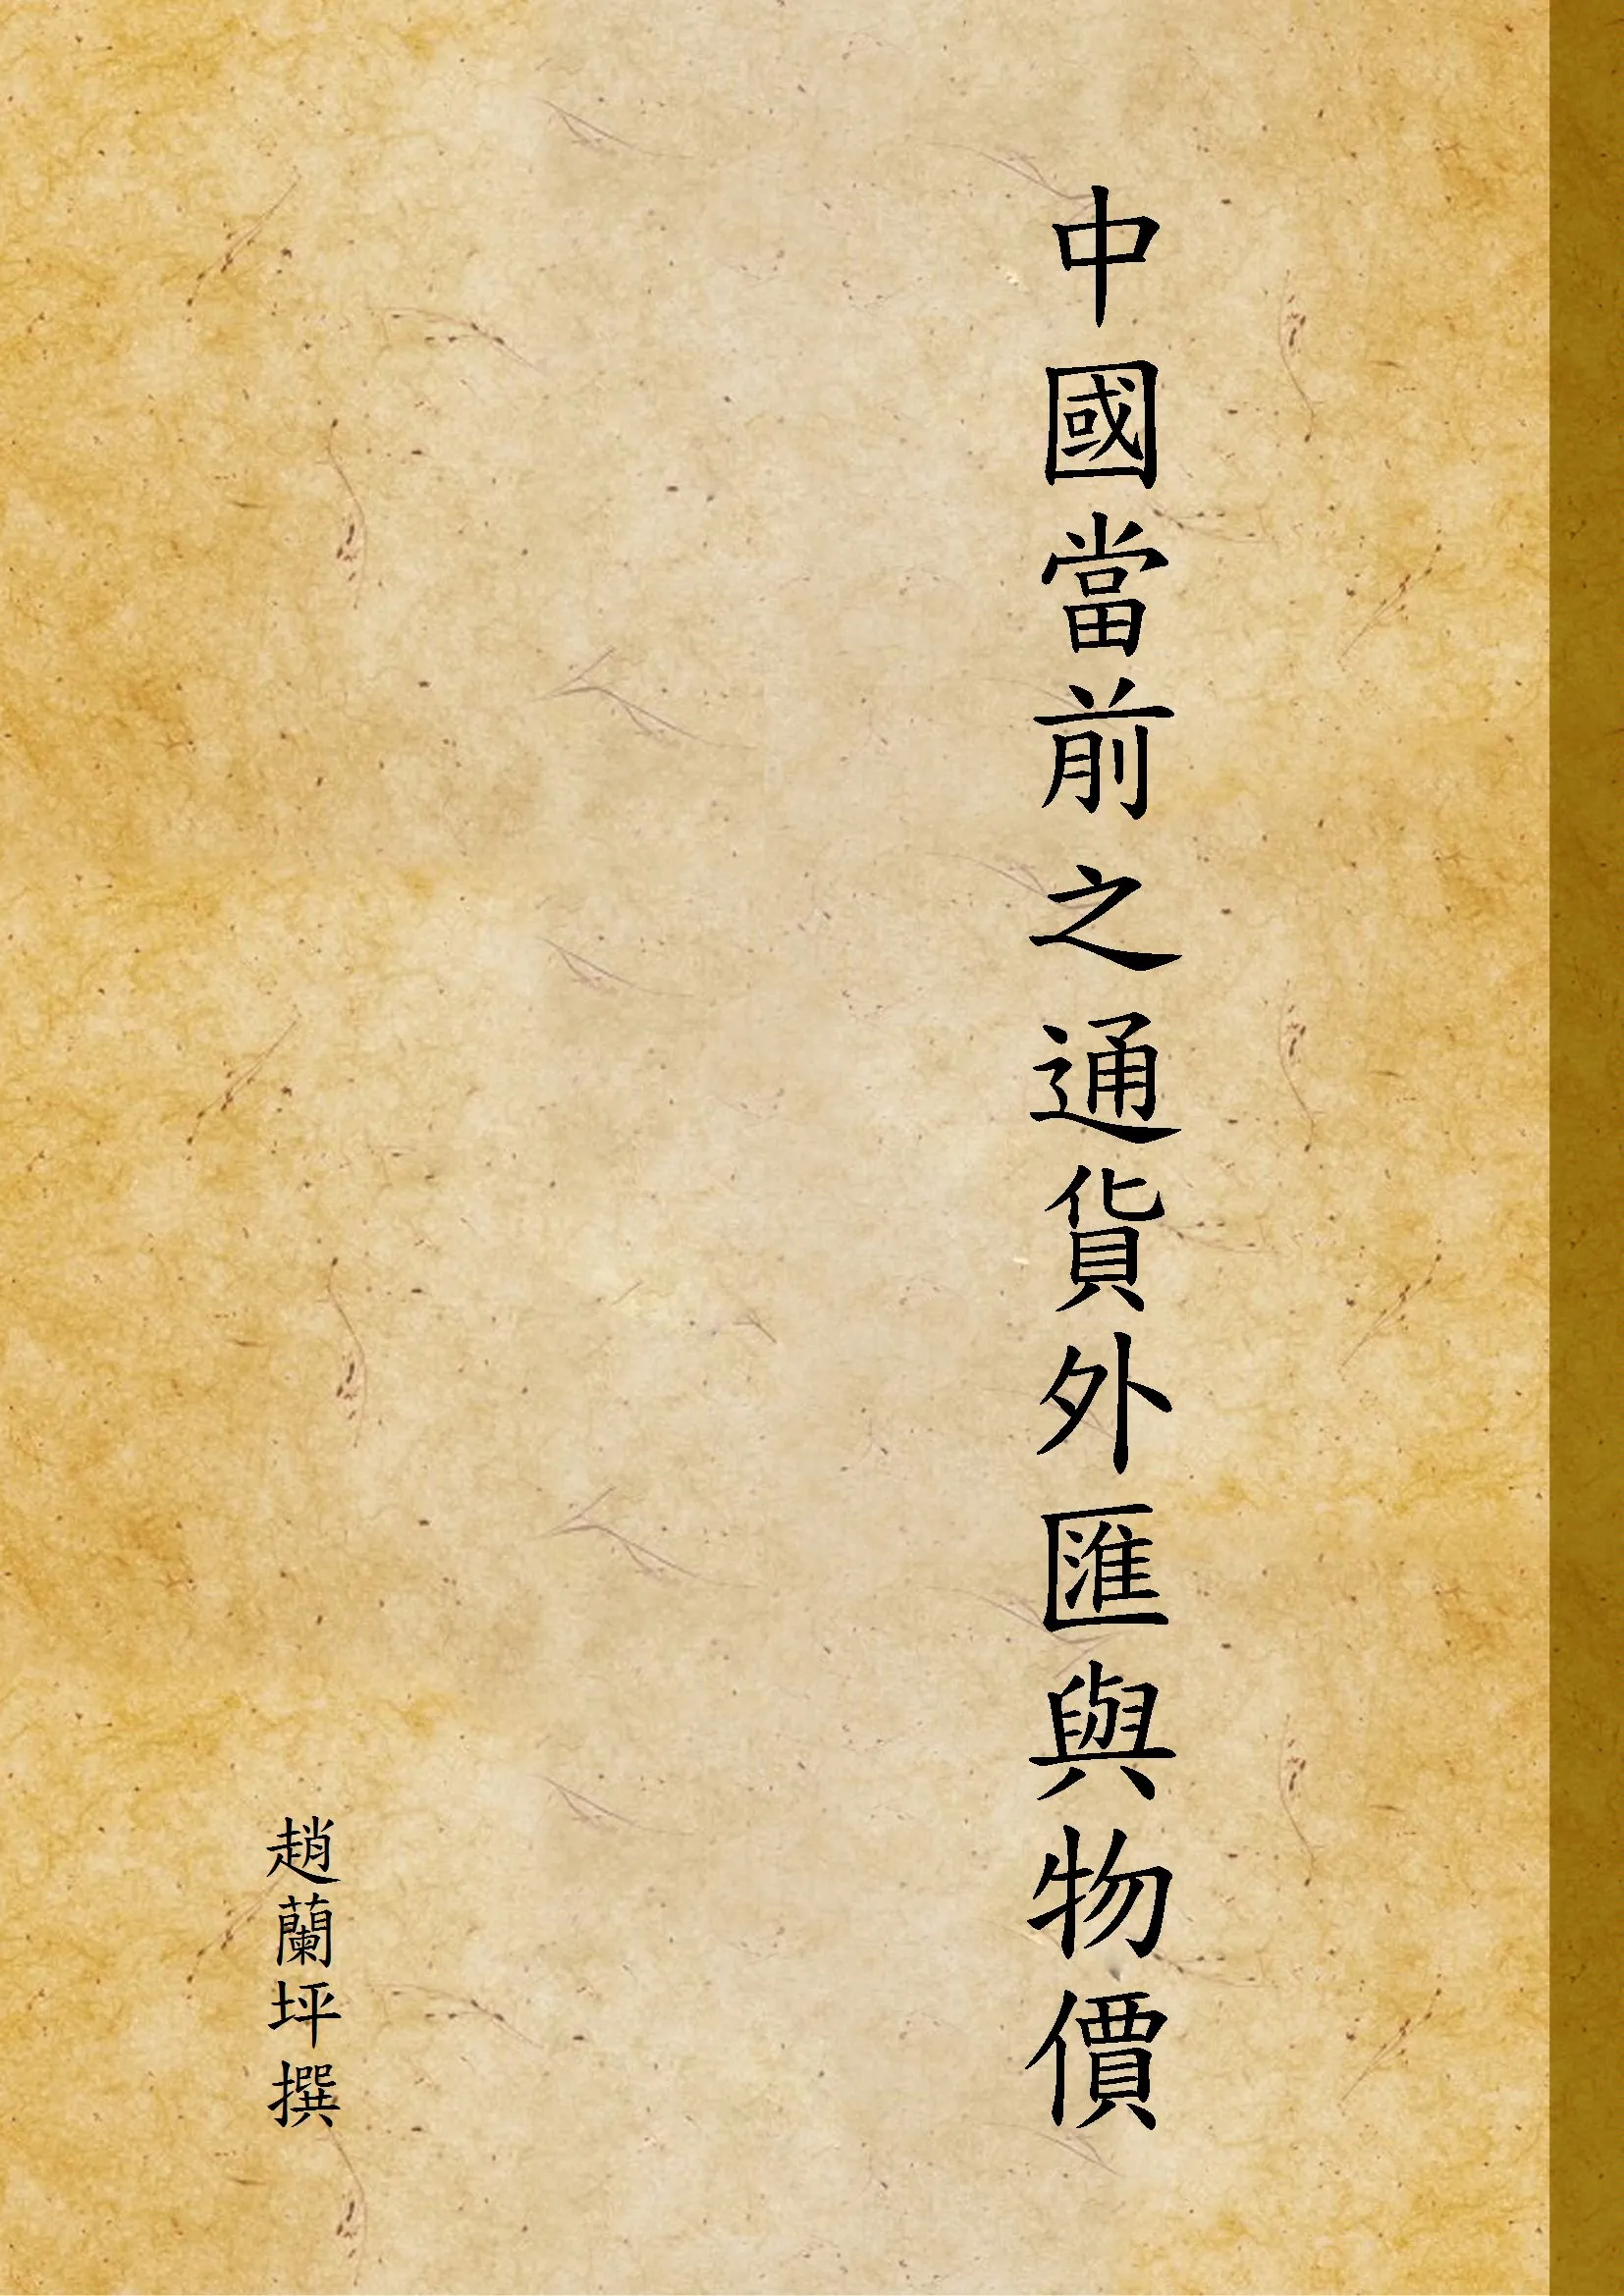 中國當前之通貨外匯與物價
趙蘭坪撰